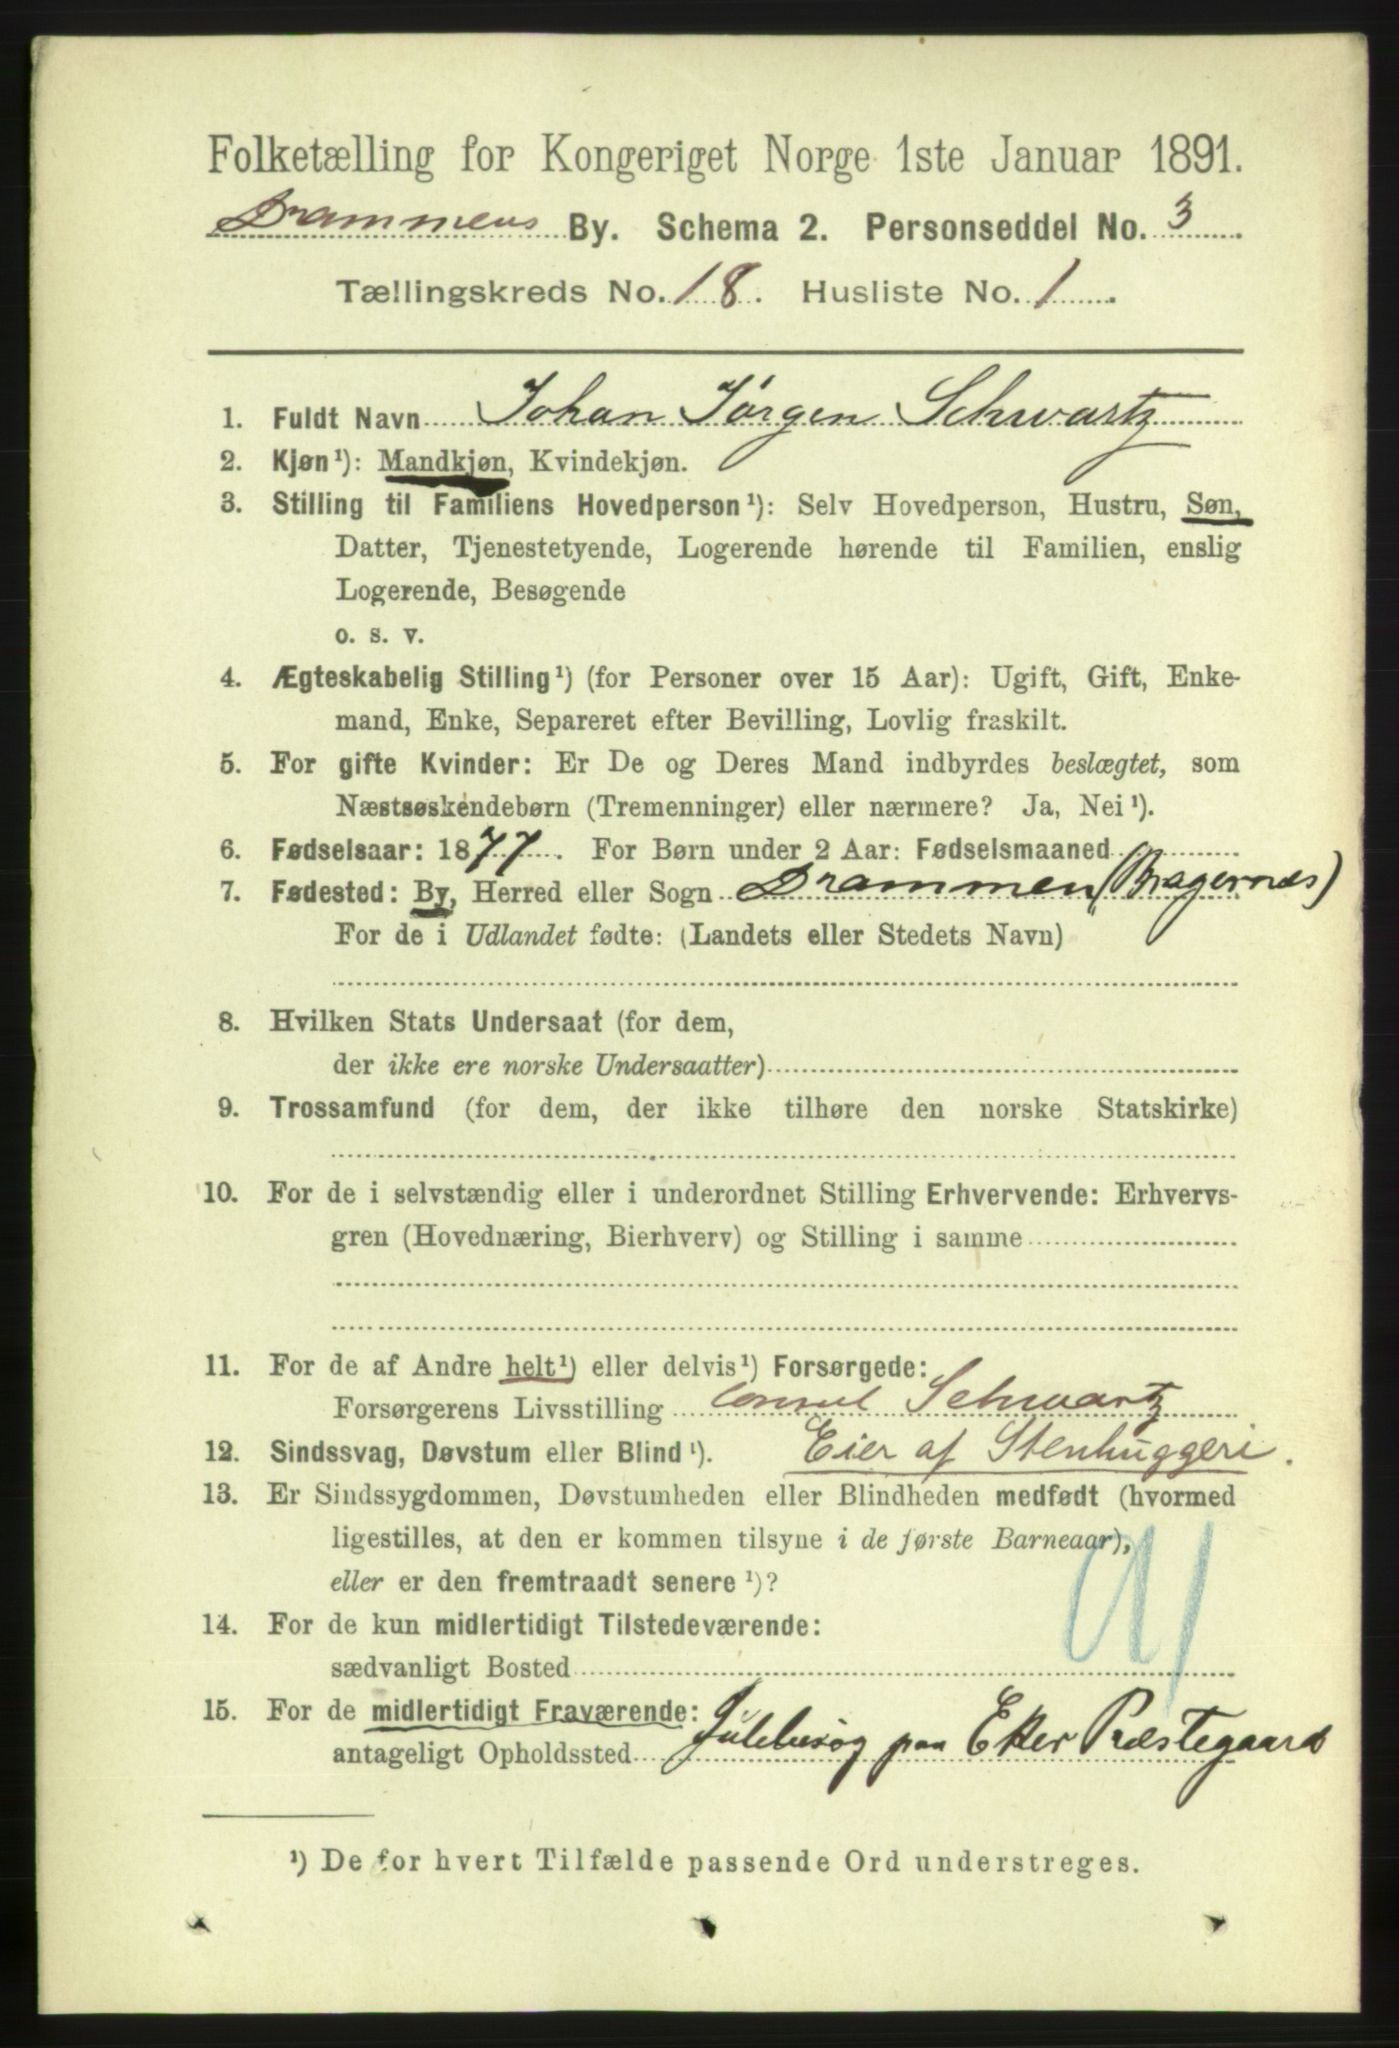 Folketælling for Kongeriget Norge 1ste Januar 1891.
Drammens By. Schema 2. Personseddel No. 3
Tællingskreds No. 18. Husliste No. 1.
1. Fuldt Navn Johan Jörgen Schwartz
2. Kjøn¹): Mandkjøn, Kvindekjøn.
3. Stilling til Familiens Hovedperson¹): Selv Hovedperson, Hustru, Søn,
Datter, Tjenestetyende, Logerende hørende til Familien, enslig
Logerende, Besøgende
o. s. v.
4. Ægteskabelig Stilling¹) (for Personer over 15 Aar): Ugift, Gift, Enke-
mand, Enke, Separeret efter Bevilling, Lovlig fraskilt.
5. For gifte Kvinder: Er De og Deres Mand indbyrdes beslægtet, som
Næstsøskendebørn (Tremenninger) eller nærmere? Ja, Nei¹).
6. Fødselsaar: 1877. For Børn under 2 Aar: Fødselsmaaned
7. Fødested: By, Herred eller Sogn Drammen (Bragernes)
For de i Udlandet fødte: (Landets eller Stedets Navn)
8. Hvilken Stats Undersaat (for dem,
der ikke ere norske Undersaatter)
9. Trossamfund (for dem, der ikke tilhøre den norske Statskirke)
10. For de i selvstændig eller i underordnet Stilling Erhvervende: Erhvervs-
gren (Hovednæring, Bierhverv) og Stilling i samme
11. For de af Andre helt¹) eller delvis¹) Forsørgede:
Forsørgerens Livsstilling Consul Schwartz
12. Sindssvag, Døvstum eller Blind¹). Eier af Stenhuggeri.
13. Er Sindssygdommen, Døvstumheden eller Blindheden medfødt (hvormed
ligestilles, at den er kommen tilsyne i de første Barneaar),
eller er den fremtraadt senere¹)?
14. For de kun midlertidigt Tilstedeværende:
sædvanligt Bosted
15. For de midlertidigt Fraværende:
antageligt Opholdssted Julebesøg paa Eker Præstegaard
¹) De for hvert Tilfælde passende Ord understreges.